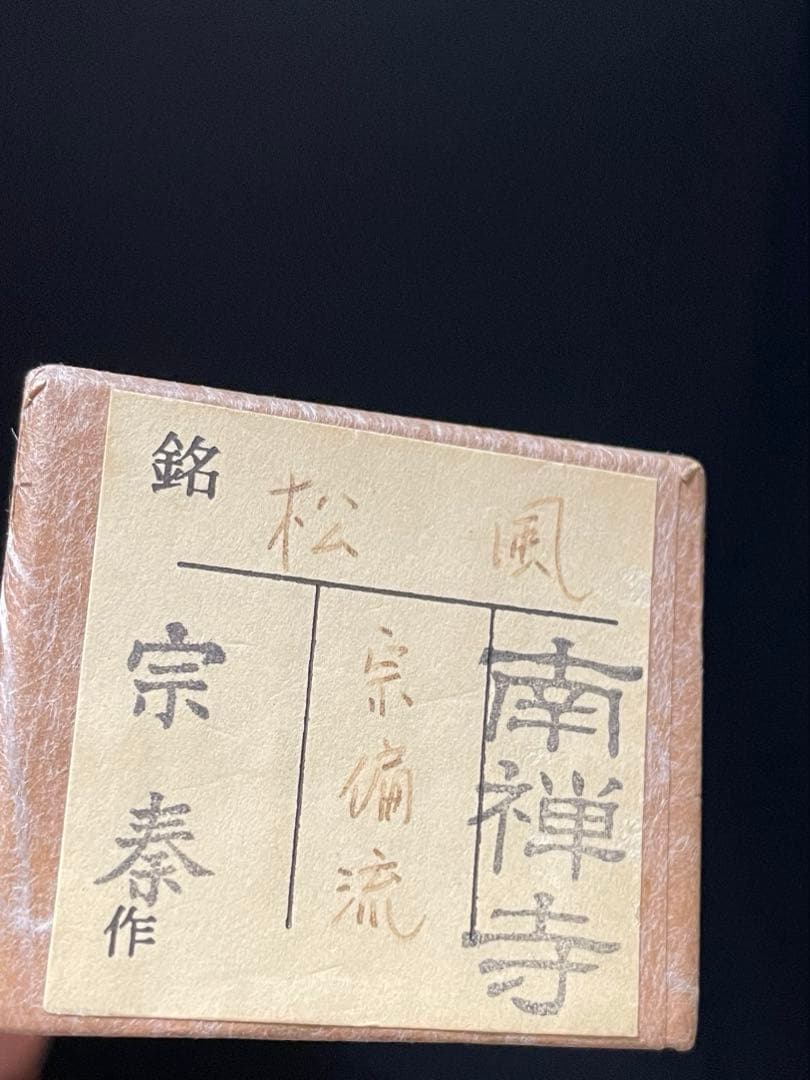 銘 松風
南禅寺
宗偏流
宗秦作